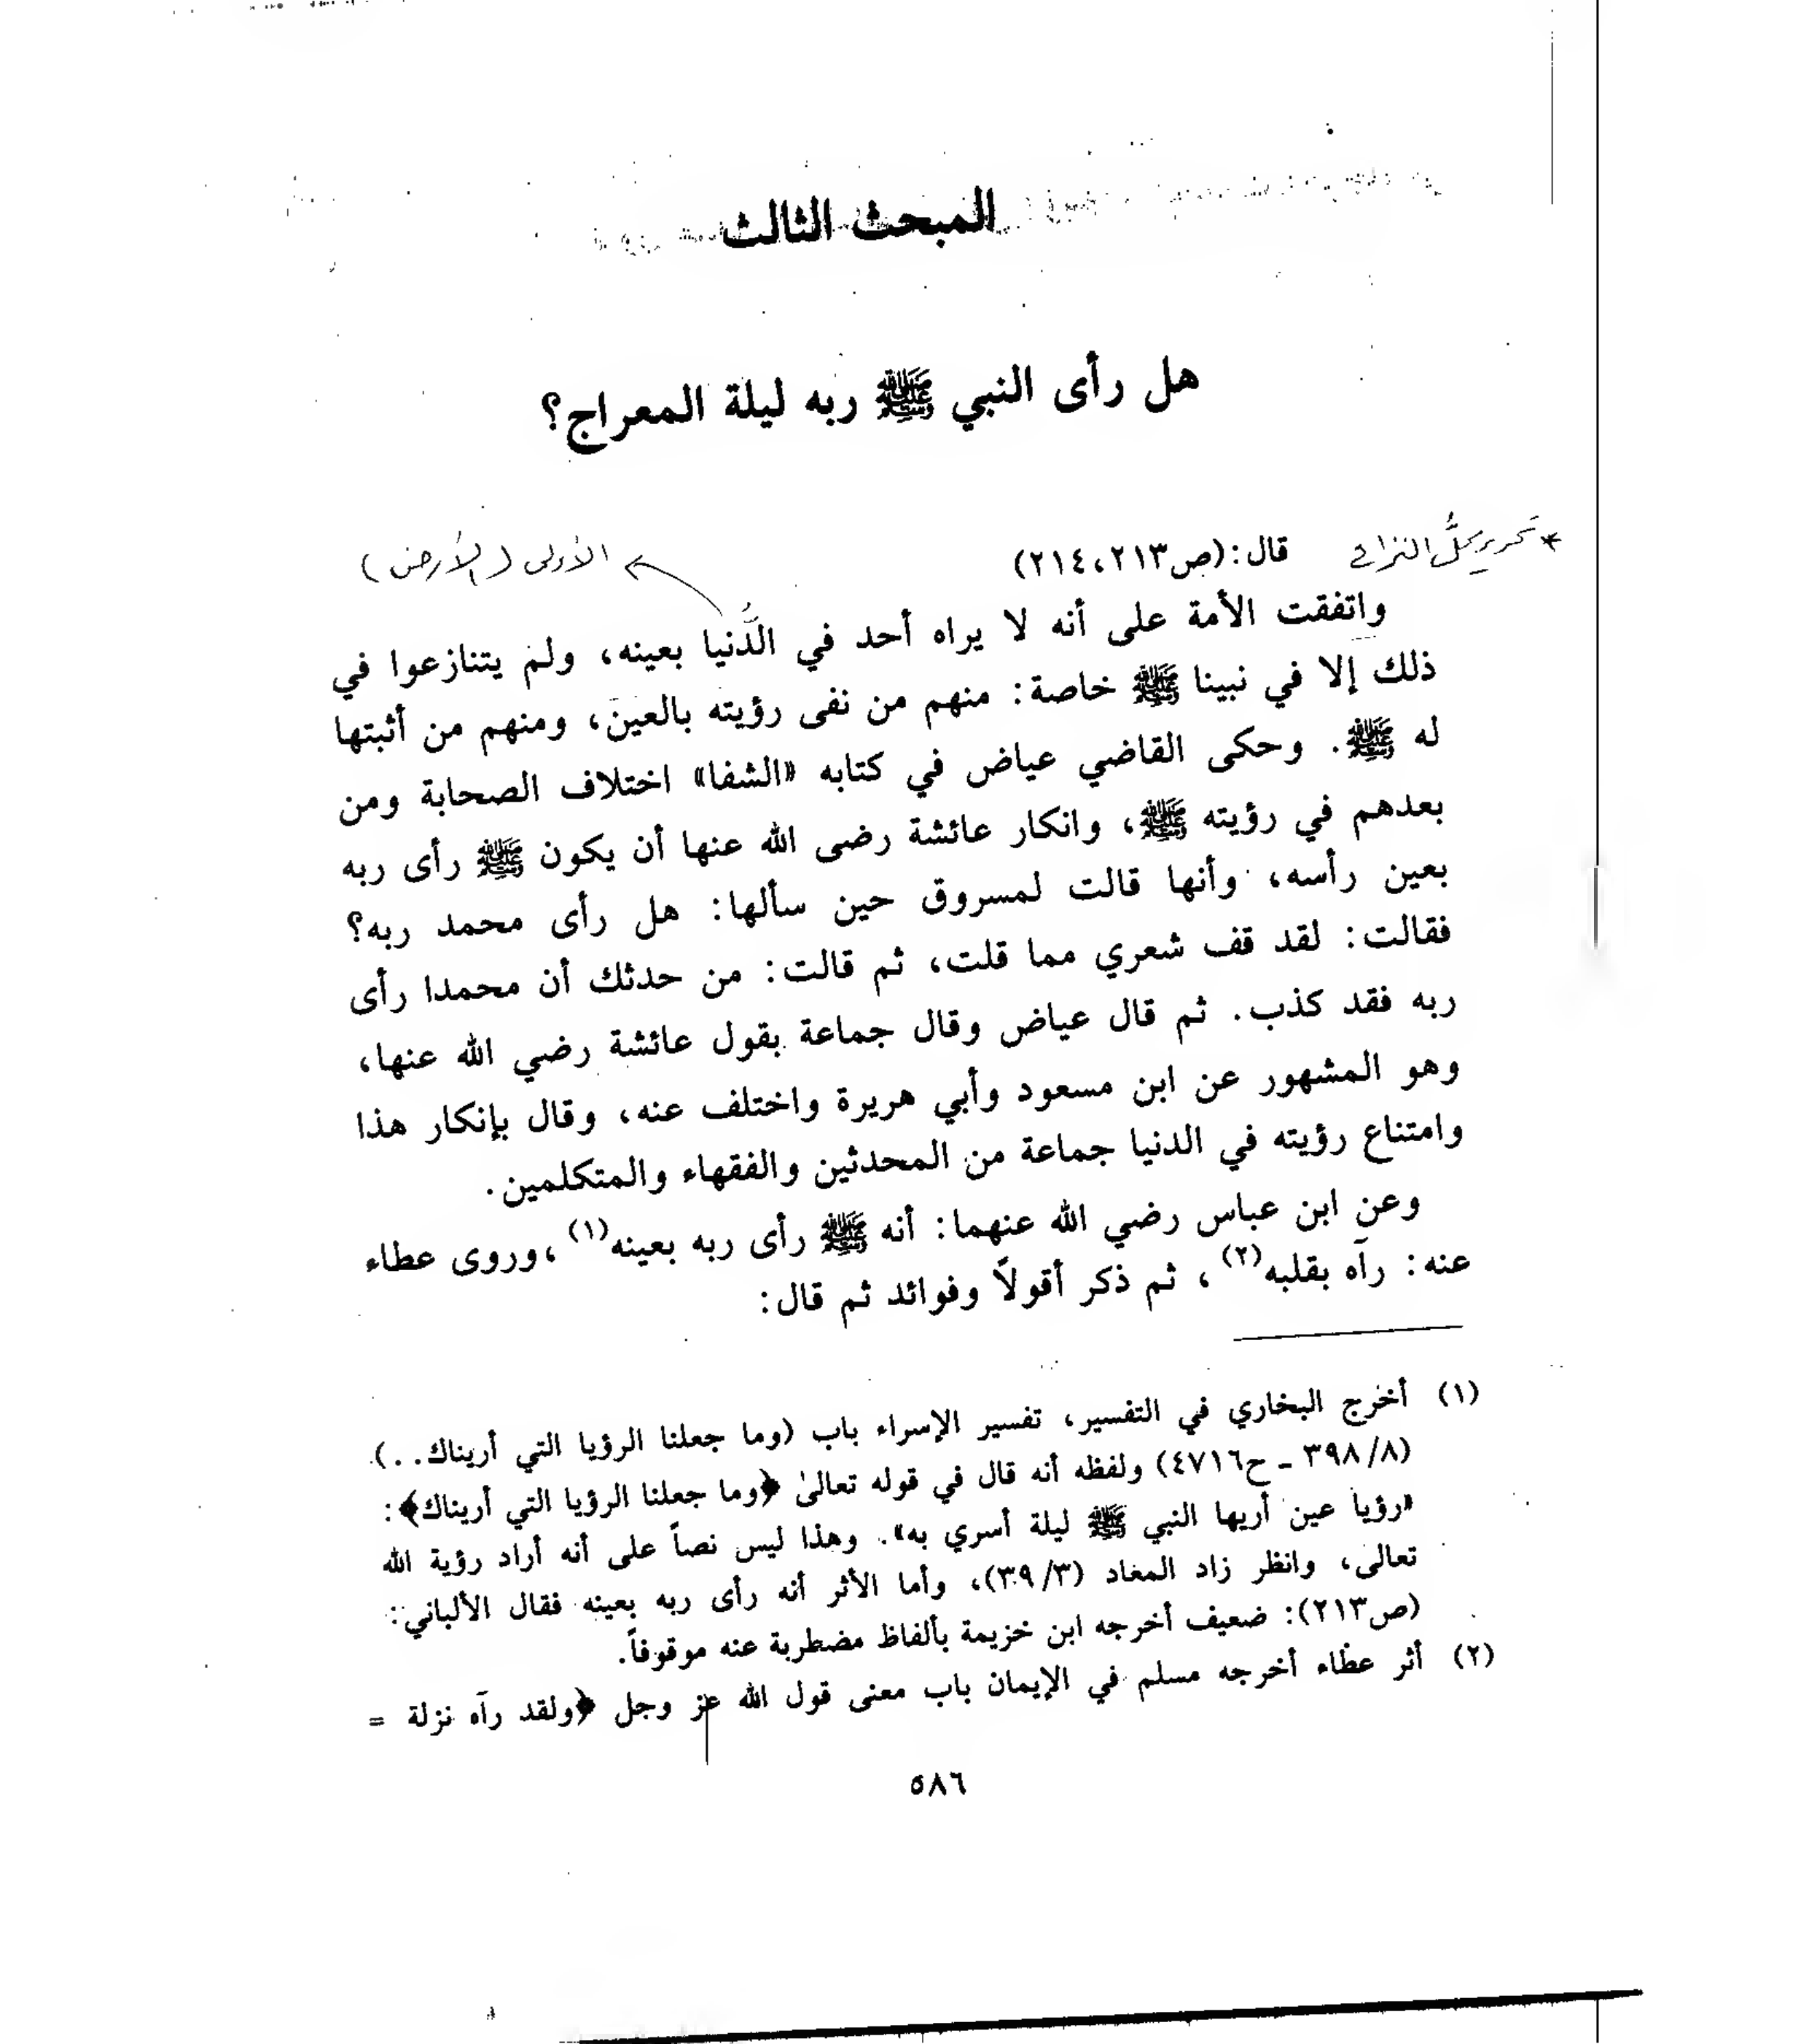 المبحث الثالث
هل رأى النبي ﷺ ربه ليلة المعراج؟
* تحرير محلُّ النزاع
قال: (ص٢١٣،٢١٤)
الأولى (الأرض)
واتفقت الأمة على أنه لا يراه أحد في الدُّنيا بعينه، ولم يتنازعوا في
ذلك إلا في نبينا ﷺ خاصة: منهم من نفى رؤيته بالعين، ومنهم من أثبتها
له ﷺ. وحكى القاضي عياض في كتابه «الشفا» اختلاف الصحابة ومن
بعدهم في رؤيته ﷺ، وانكار عائشة رضى الله عنها أن يكون ﷺ رأى ربه
بعين رأسه، وأنها قالت لمسروق حين سألها: هل رأى محمد ربه؟
فقالت: لقد قف شعري مما قلت، ثم قالت: من حدثك أن محمدا رأى
ربه فقد كذب. ثم قال عياض وقال جماعة بقول عائشة رضي الله عنها،
وهو المشهور عن ابن مسعود وأبي هريرة واختلف عنه، وقال بإنكار هذا
وامتناع رؤيته في الدنيا جماعة من المحدثين والفقهاء والمتكلمين.
وعن ابن عباس رضي الله عنهما: أنه ﷺ رأى ربه بعينه(١)، وروى عطاء
عنه: رآه بقلبه(٢)، ثم ذكر أقولاً وفوائد ثم قال:
(١) أخرج البخاري في التفسير، تفسير الإسراء باب (وما جعلنا الرؤيا التي أريناك..)
(٣٩٨/٨ - ح٤٧١٦) ولفظه أنه قال في قوله تعالىٰ ﴿وما جعلنا الرؤيا التي أريناك﴾:
«رؤيا عين أريها النبي ﷺ ليلة أسري به». وهذا ليس نصاً على أنه أراد رؤية الله
تعالى، وانظر زاد المعاد (٣٩/٣)، وأما الأثر أنه رأى ربه بعينه فقال الألباني:
(ص٢١٣): ضعيف أخرجه ابن خزيمة بألفاظ مضطربة عنه موقوفاً.
(٢) أثر عطاء أخرجه مسلم في الإيمان باب معنى قول الله عز وجل ﴿ولقد رآه نزلة =
٥٨٦